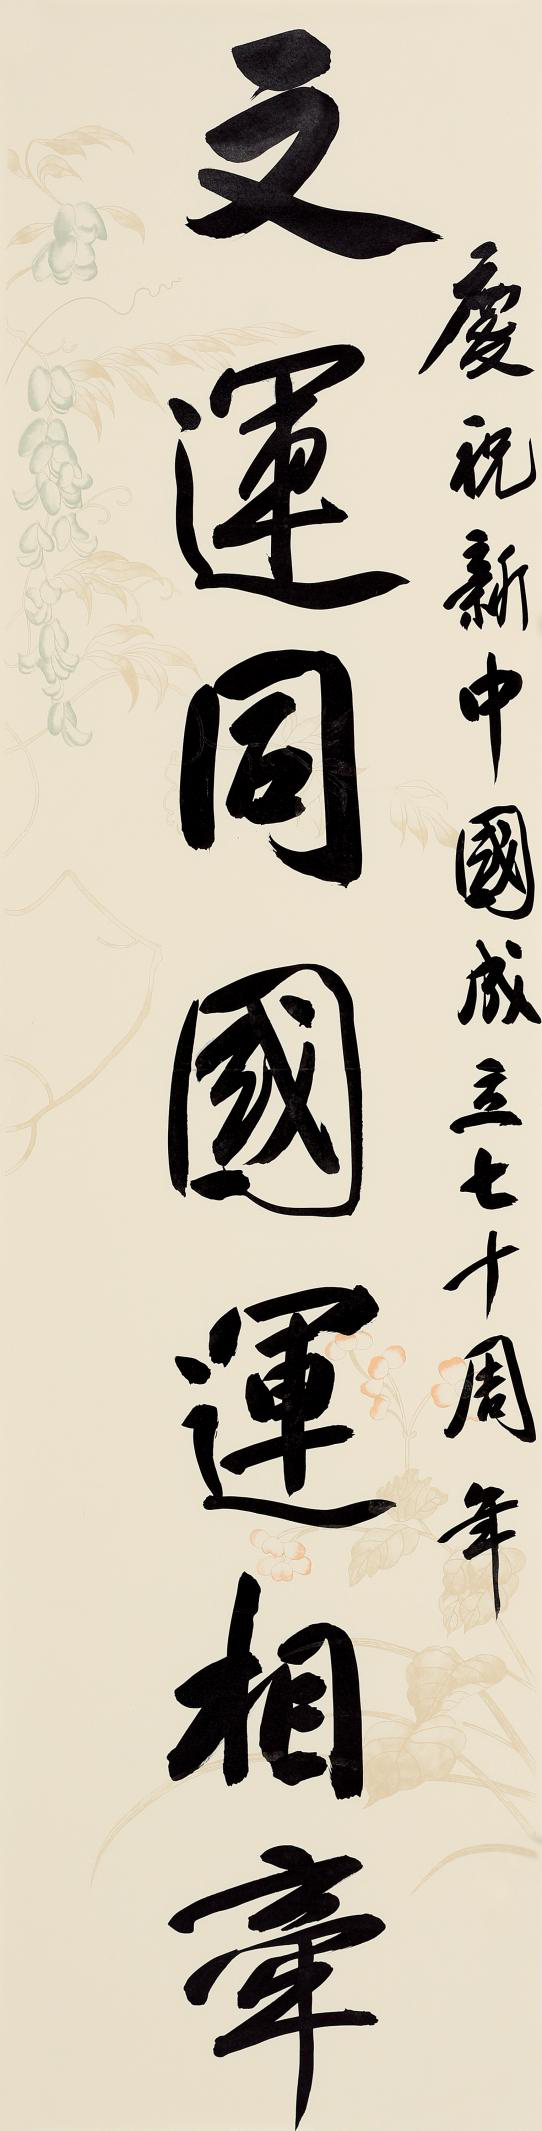 慶祝新中國成立七十周年
文運同國運相牽